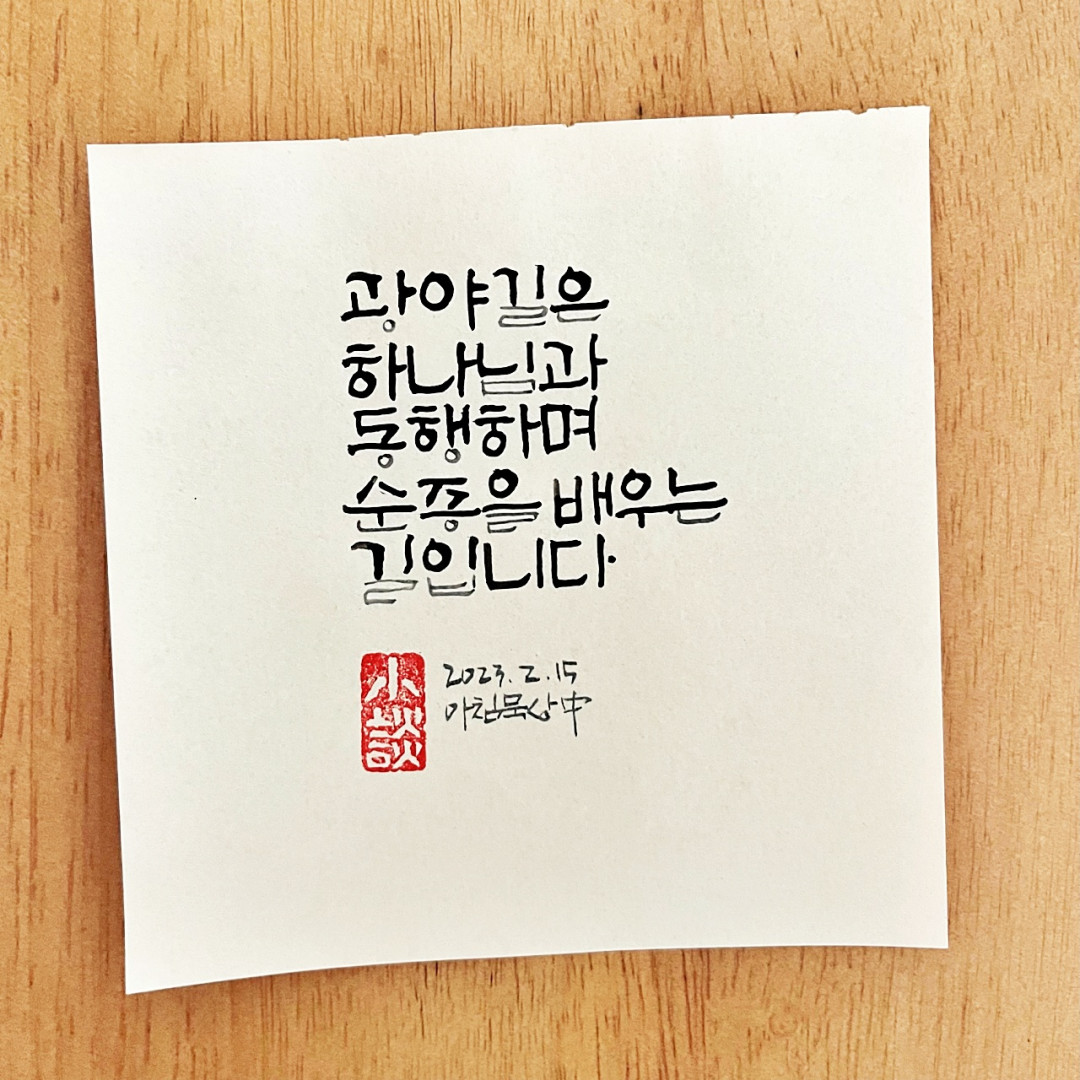 광야길은
하나님과
동행하며
순종을 배우는
길입니다.
小談
2023. 2. 15
아침묵상中